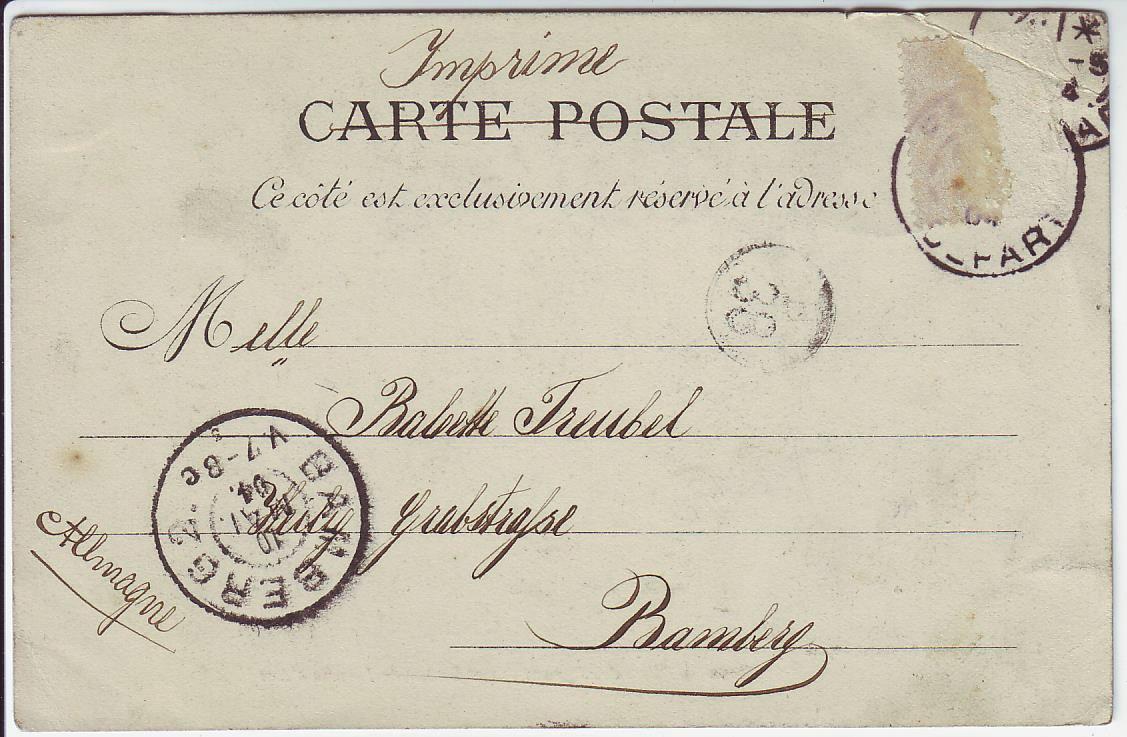 Imprime
CARTE POSTALE
Ce côté est exclusivement réservé à l'adresse
Melle
38
Babette Treubel
Grabstrasse
Allemagne
Bamberg
BAMBERG 2.
V.7-8
04.